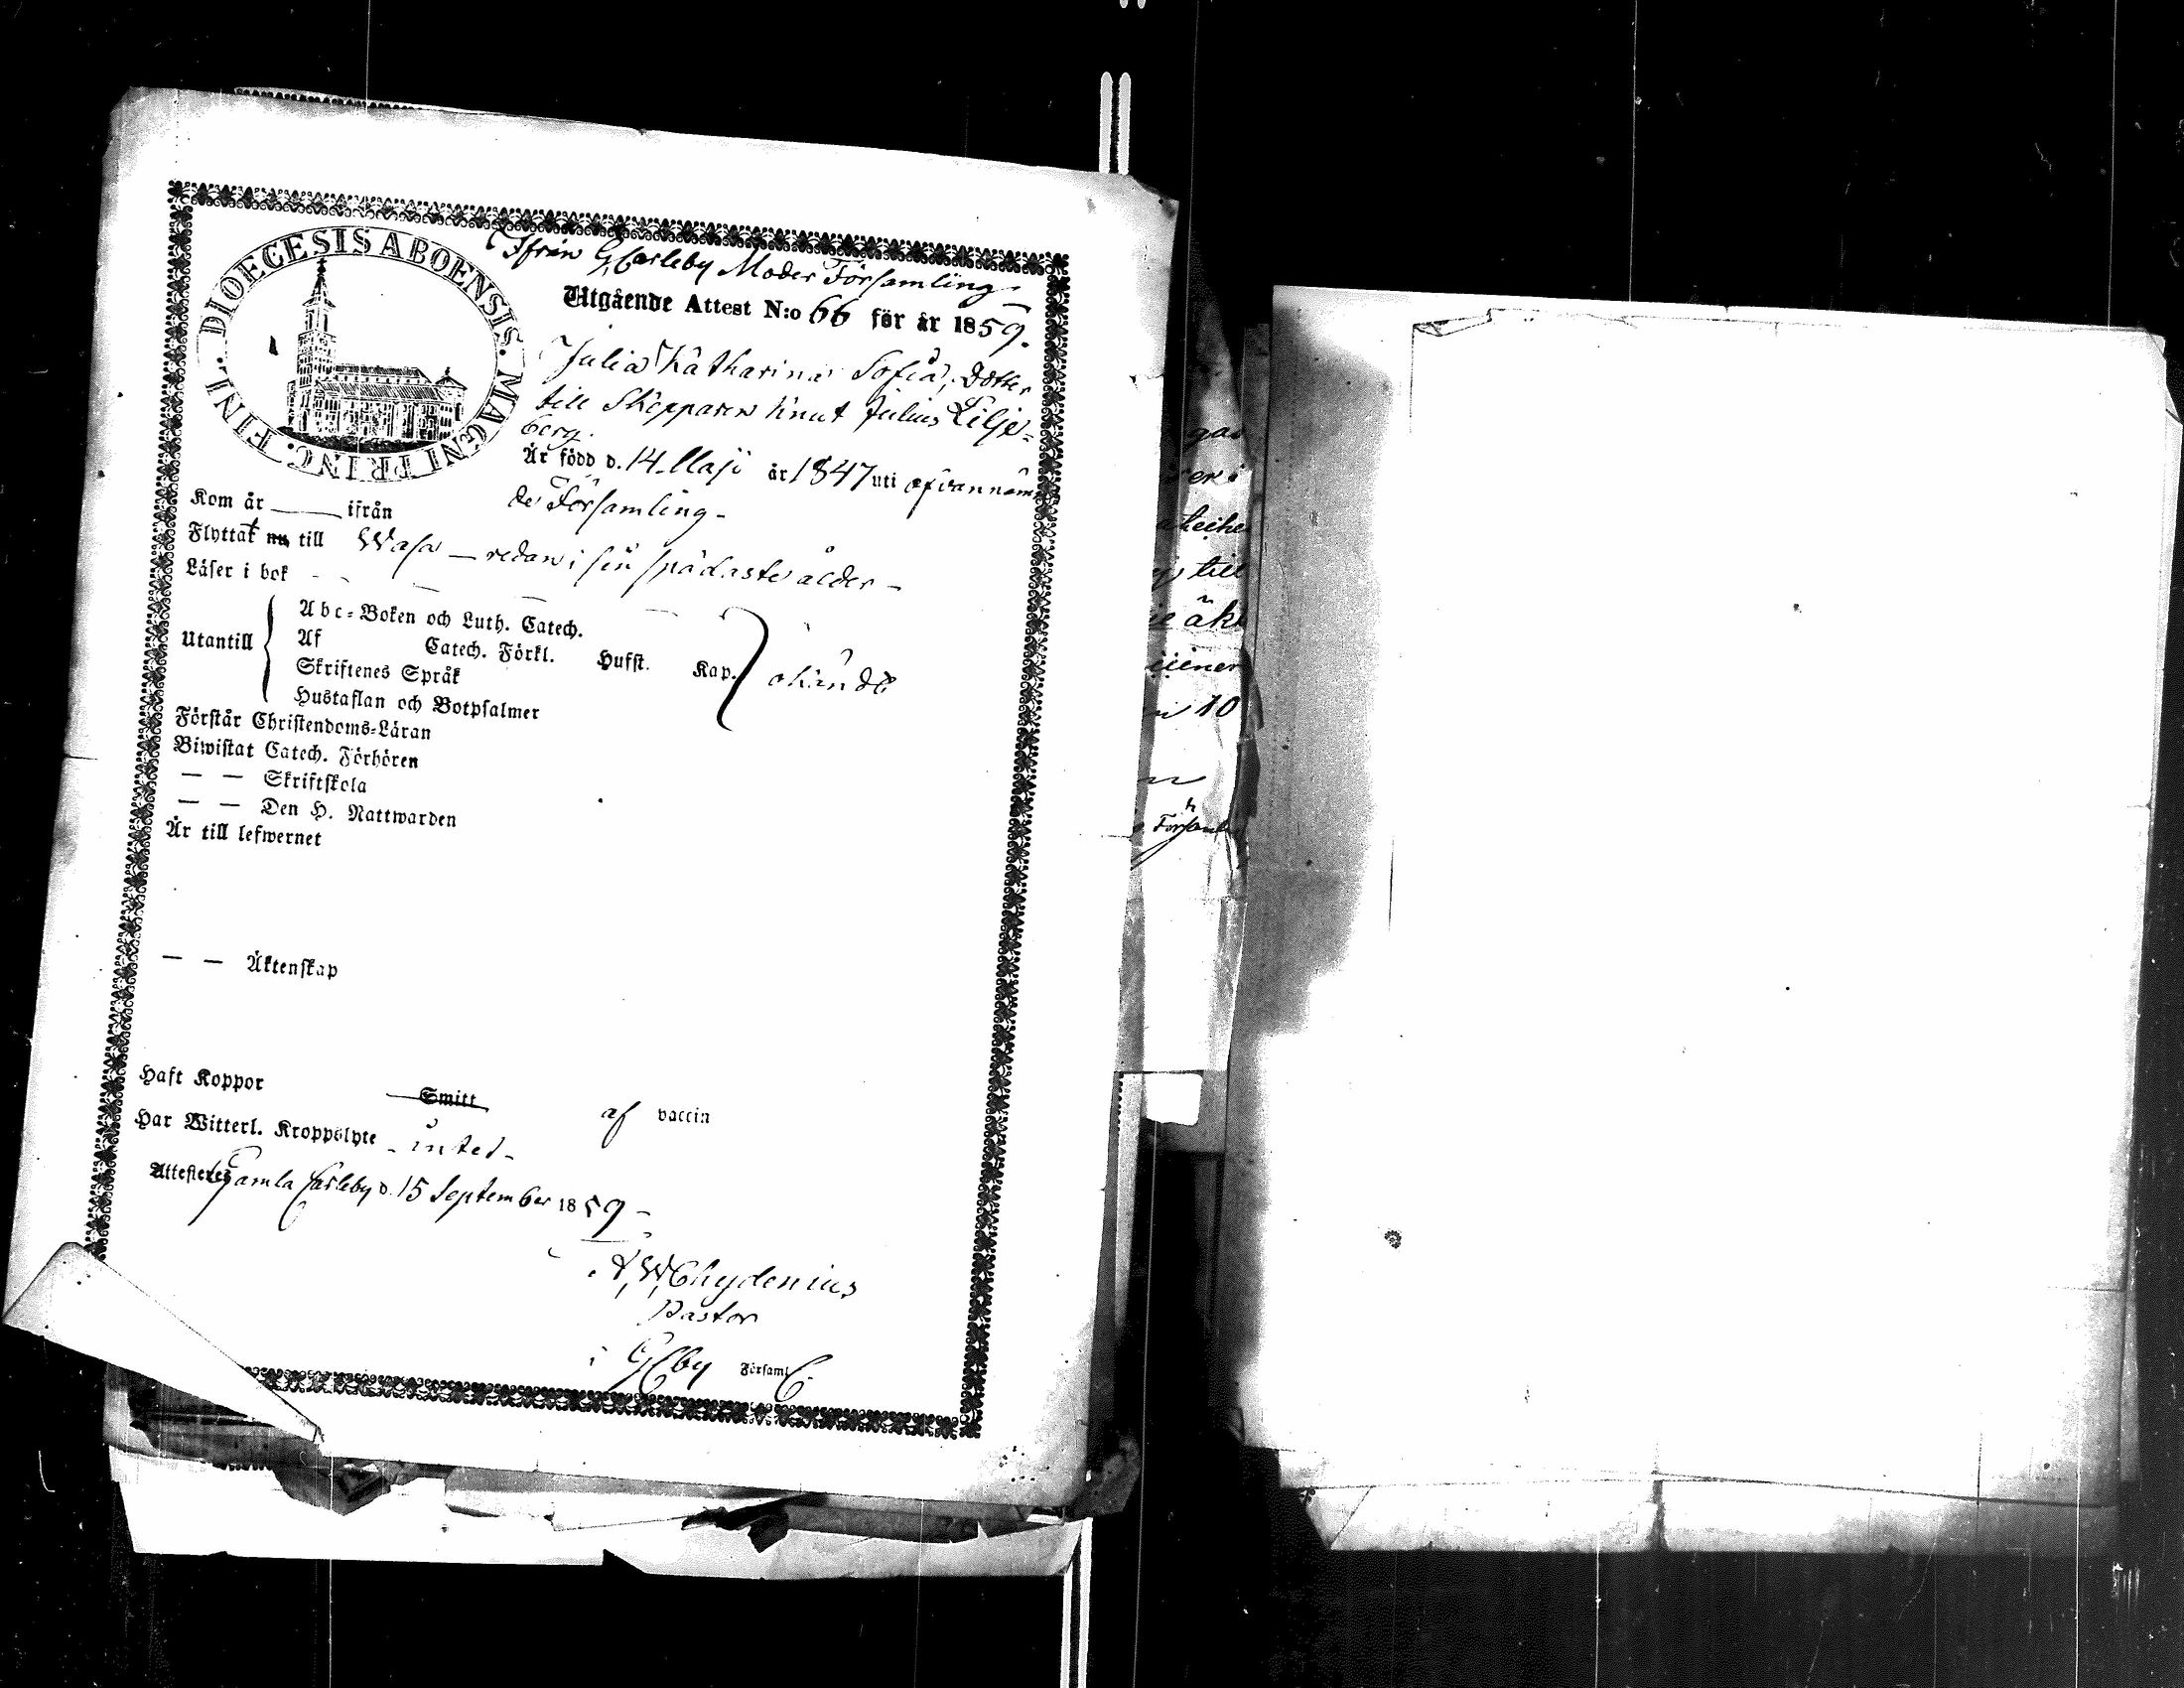 DIOECESIS ABOENSIS. MAGNI PRINC. FINL.
Ifrån G Carleby Moder Församling
Utgående Attest N:o 66 för år 1859.
Julia Katharina Sofia, dotter
till Skepparen Knut Julius Lilje-
berg.
Är född d. 14 Maji år 1847 uti ofvannämn
de Församling -
Kom år ifrån
Flyttat nu till Wasa — redan i sin spädaste ålder -
Läser i bok
Utantill
Abc-Boken och Luth. Catech.
Af Catech. Förkl. Hufst. Kap.
okändt
Skriftenes Språk
Hustaflan och Botpsalmer
Förstår Christendoms-Läran
Biwistat Catech. Förhören
— — Skriftskola
— — Den H. Nattwarden
Är till lefwernet
— — Äktenskap
Haft Koppor Smitt af vaccin
Har Witterl. Kroppslyte - intet -
Attesteres Gamla Carleby d. 15 September 1859 -
A, W, Chydenius
Pastor
i GCby Församl.
till
10